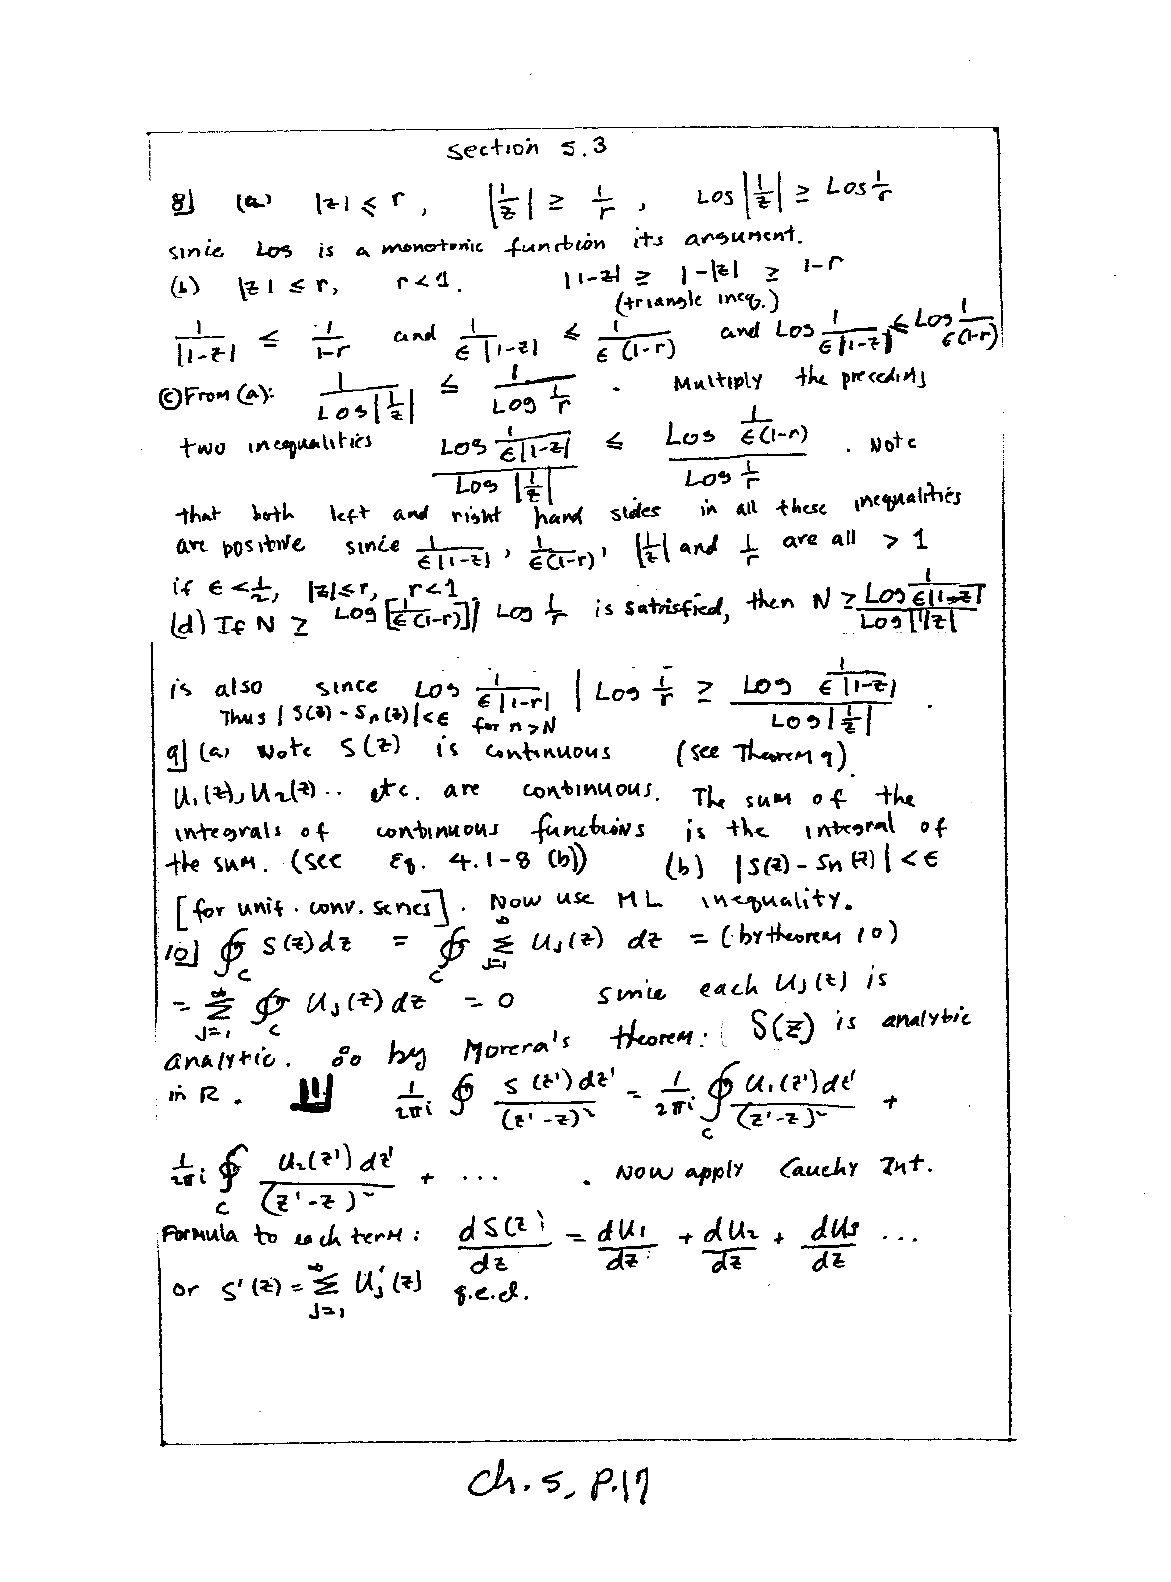 Section 5.3
8] (a) |z| ≤ r, |1/z| ≥ 1/r, Log|1/z| ≥ Log 1/r
since Log is a monotonic function its argument.
(b) |z| ≤ r, r<1. |1-z| ≥ 1-|z| ≥ 1-r
(triangle ineq.)
1/|1-z| ≤ 1/(1-r) and 1/(ϵ|1-z|) ≤ 1/(ϵ(1-r)) and Log 1/(ϵ|1-z|) ≤ Log 1/(ϵ(1-r))
(c) From (a): 1/(Log|1/z|) ≤ 1/(Log 1/r). Multiply the preceding
two inequalities (Log 1/(ϵ|1-z|))/(Log|1/z|) ≤ (Log 1/(ϵ(1-r)))/(Log 1/r). Note
that both left and right hand sides in all these inequalities
are positive since 1/(ϵ|1-z|), 1/(ϵ(1-r)), |1/z| and 1/r are all > 1
if ϵ < 1/2, |z|≤r, r<1.
(d) If N ≥ Log [1/(ϵ(1-r))]/ Log 1/r is satisfied, then N ≥ (Log 1/(ϵ|1-z|))/(Log|1/z|)
is also since Log 1/(ϵ|1-r|) / Log 1/r ≥ (Log 1/(ϵ|1-z|))/(Log|1/z|).
Thus |S(z) - Sn(z)|<ϵ for n>N
9] (a) Note S(z) is continuous (see Theorem 9)
u₁(z), u₂(z).. etc. are continuous. The sum of the
integrals of continuous functions is the integral of
the sum. (see Eq. 4.1-8 (b)) (b) |S(z) - Sn(z)| < ϵ
[for unif. conv. series]. Now use ML inequality.
10] ∮_C S(z)dz = ∮_C ∑_{j=1}^∞ uj(z) dz = (by theorem 10)
= ∑_{j=1}^∞ ∮_C uj(z)dz = 0 since each uj(z) is
analytic. So by Morera's theorem: S(z) is analytic
in R. 11] 1/(2πi) ∮ S(z')dz'/(z'-z)² = 1/(2πi) ∮_C u₁(z')dz'/(z'-z)² +
1/(2πi) ∮_C u₂(z')dz'/(z'-z)² + .... Now apply Cauchy Int.
Formula to each term: dS(z)/dz = du₁/dz + du₂/dz + du₃/dz ...
or S'(z) = ∑_{j=1}^∞ uj'(z) q.e.d.
Ch. 5, P.17